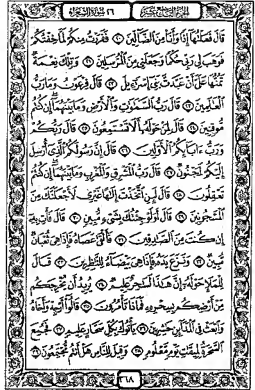 الجزء التاسع عشر ٢٦ سورة الشعراء
قَالَ فَعَلْتُهَا إِذًا وَأَنَا مِنَ الضَّالِّينَ ۝٢٠ فَفَرَرْتُ مِنكُمْ لَمَّا خِفْتُكُمْ
فَوَهَبَ لِي رَبِّي حُكْمًا وَجَعَلَنِي مِنَ الْمُرْسَلِينَ ۝٢١ وَتِلْكَ نِعْمَةٌ
تَمُنُّهَا عَلَيَّ أَنْ عَبَّدتَّ بَنِي إِسْرَائِيلَ ۝٢٢ قَالَ فِرْعَوْنُ وَمَا رَبُّ
الْعَالَمِينَ ۝٢٣ قَالَ رَبُّ السَّمَاوَاتِ وَالْأَرْضِ وَمَا بَيْنَهُمَا إِن كُنتُم
مُّوقِنِينَ ۝٢٤ قَالَ لِمَنْ حَوْلَهُ أَلَا تَسْتَمِعُونَ ۝٢٥ قَالَ رَبُّكُمْ
وَرَبُّ آبَائِكُمُ الْأَوَّلِينَ ۝٢٦ قَالَ إِنَّ رَسُولَكُمُ الَّذِي أُرْسِلَ
إِلَيْكُمْ لَمَجْنُونٌ ۝٢٧ قَالَ رَبُّ الْمَشْرِقِ وَالْمَغْرِبِ وَمَا بَيْنَهُمَا إِن كُنتُمْ
تَعْقِلُونَ ۝٢٨ قَالَ لَئِنِ اتَّخَذْتَ إِلَٰهًا غَيْرِي لَأَجْعَلَنَّكَ مِنَ
الْمَسْجُونِينَ ۝٢٩ قَالَ أَوَلَوْ جِئْتُكَ بِشَيْءٍ مُّبِينٍ ۝٣٠ قَالَ فَأْتِ بِهِ
إِن كُنتَ مِنَ الصَّادِقِينَ ۝٣١ فَأَلْقَىٰ عَصَاهُ فَإِذَا هِيَ ثُعْبَانٌ
مُّبِينٌ ۝٣٢ وَنَزَعَ يَدَهُ فَإِذَا هِيَ بَيْضَاءُ لِلنَّاظِرِينَ ۝٣٣ قَالَ
لِلْمَلَإِ حَوْلَهُ إِنَّ هَٰذَا لَسَاحِرٌ عَلِيمٌ ۝٣٤ يُرِيدُ أَن يُخْرِجَكُم
مِّنْ أَرْضِكُم بِسِحْرِهِ فَمَاذَا تَأْمُرُونَ ۝٣٥ قَالُوا أَرْجِهْ وَأَخَاهُ
وَابْعَثْ فِي الْمَدَائِنِ حَاشِرِينَ ۝٣٦ يَأْتُوكَ بِكُلِّ سَحَّارٍ عَلِيمٍ ۝٣٧ فَجُمِعَ
السَّحَرَةُ لِمِيقَاتِ يَوْمٍ مَّعْلُومٍ ۝٣٨ وَقِيلَ لِلنَّاسِ هَلْ أَنتُم مُّجْتَمِعُونَ ۝٣٩
٣٦٨